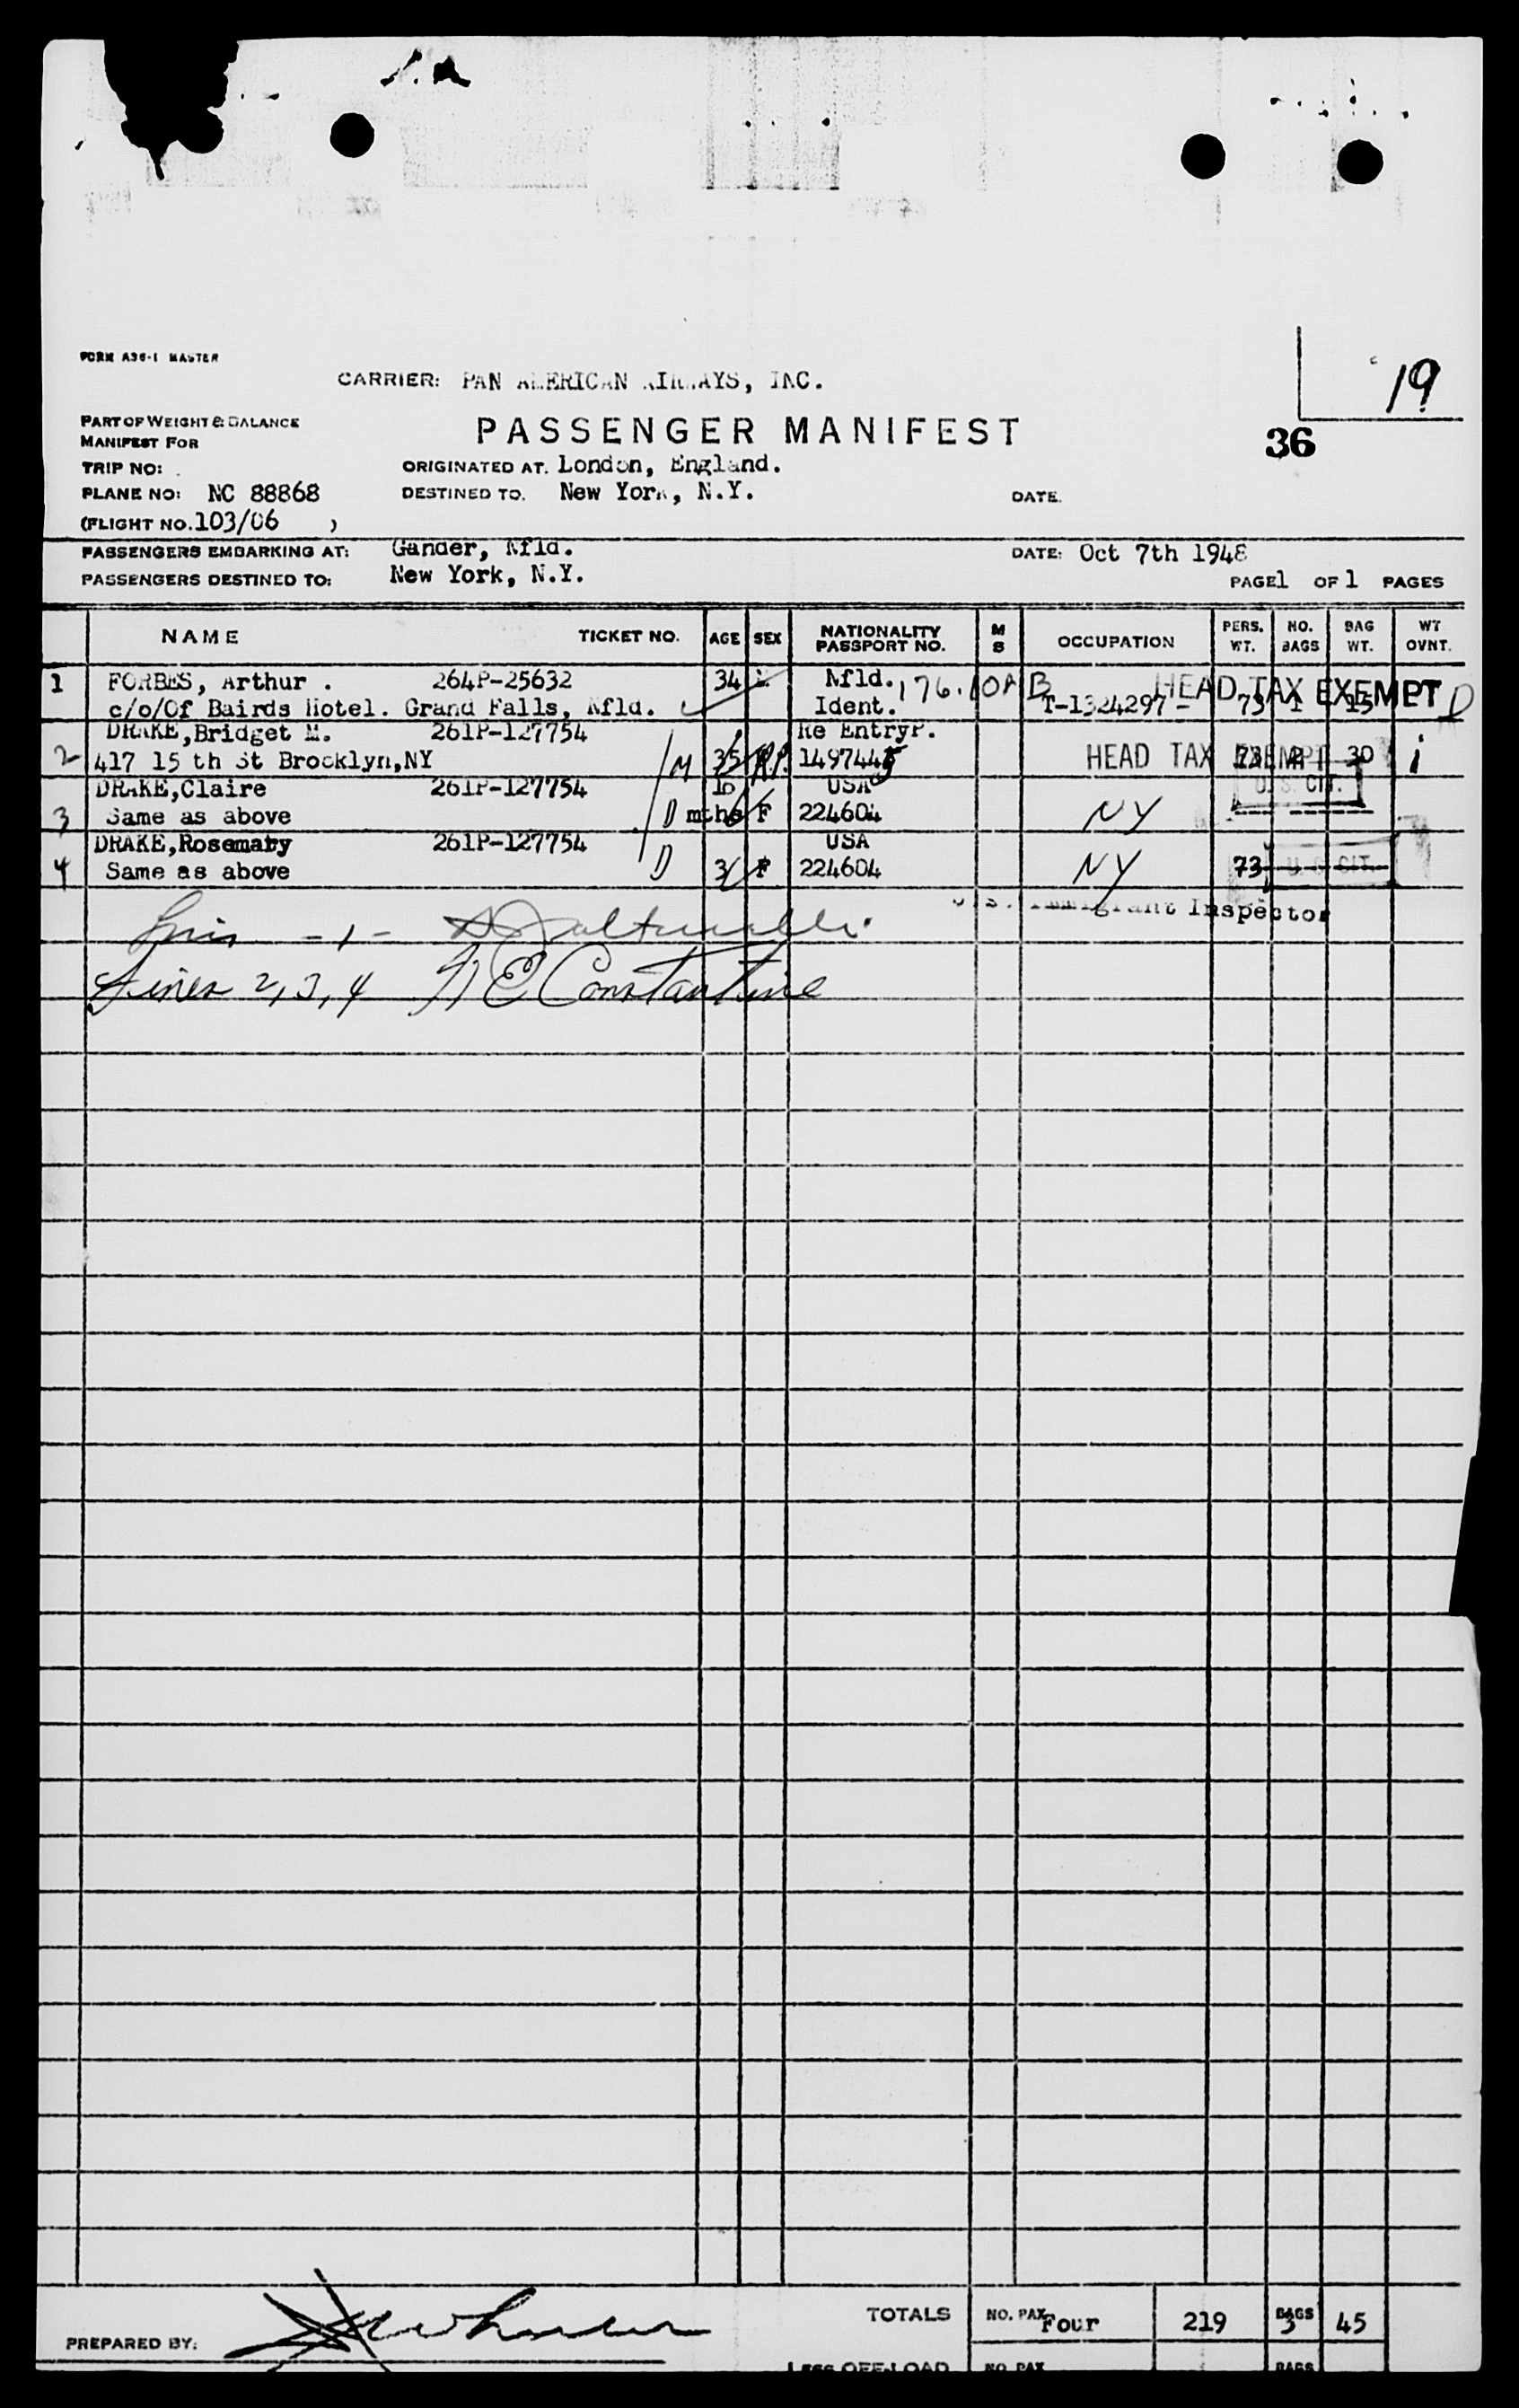 FORM A36-1 MASTER
CARRIER: PAN AMERICAN AIRWAYS, INC.
19
PART OF WEIGHT & BALANCE
MANIFEST FOR
PASSENGER MANIFEST
36
TRIP NO:
ORIGINATED AT. London, England.
PLANE NO: NC 88868
DESTINED TO. New York, N.Y.
DATE.
(FLIGHT NO. 103/06 )
PASSENGERS EMBARKING AT: Gander, Nfld.
DATE: Oct 7th 1948
PASSENGERS DESTINED TO: New York, N.Y.
PAGE 1 OF 1 PAGES
NAME TICKET NO. AGE SEX NATIONALITY PASSPORT NO. M S OCCUPATION PERS. WT. NO. BAGS BAG WT. WT OVNT.
1 FORBES, Arthur . 264P-25632 34 M Nfld. 176. HEAD TAX EXEMPT
c/o/Of Bairds Hotel. Grand Falls, Nfld. Ident. T-1324297 - 73 1 15 D
DRAKE,Bridget M. 261P-127754 Re EntryP.
2 417 15 th St Brooklyn,NY M 35 R.P. 1497445 HEAD TAX EXEMPT 73 2 30 i
DRAKE,Claire 261P-127754 10 USA U.S. CIT.
3 Same as above D mths F 224604 NY
DRAKE,Rosemary 261P-127754 USA
4 Same as above D 3 F 224604 NY 73 U.S. CIT.
U.S. Immigrant Inspector
- 1 -
Lines 2, 3, 4 N E Constantine
TOTALS NO. PAX Four 219 BAGS 3 45
PREPARED BY:
LESS OFF-LOAD NO. PAX BAGS